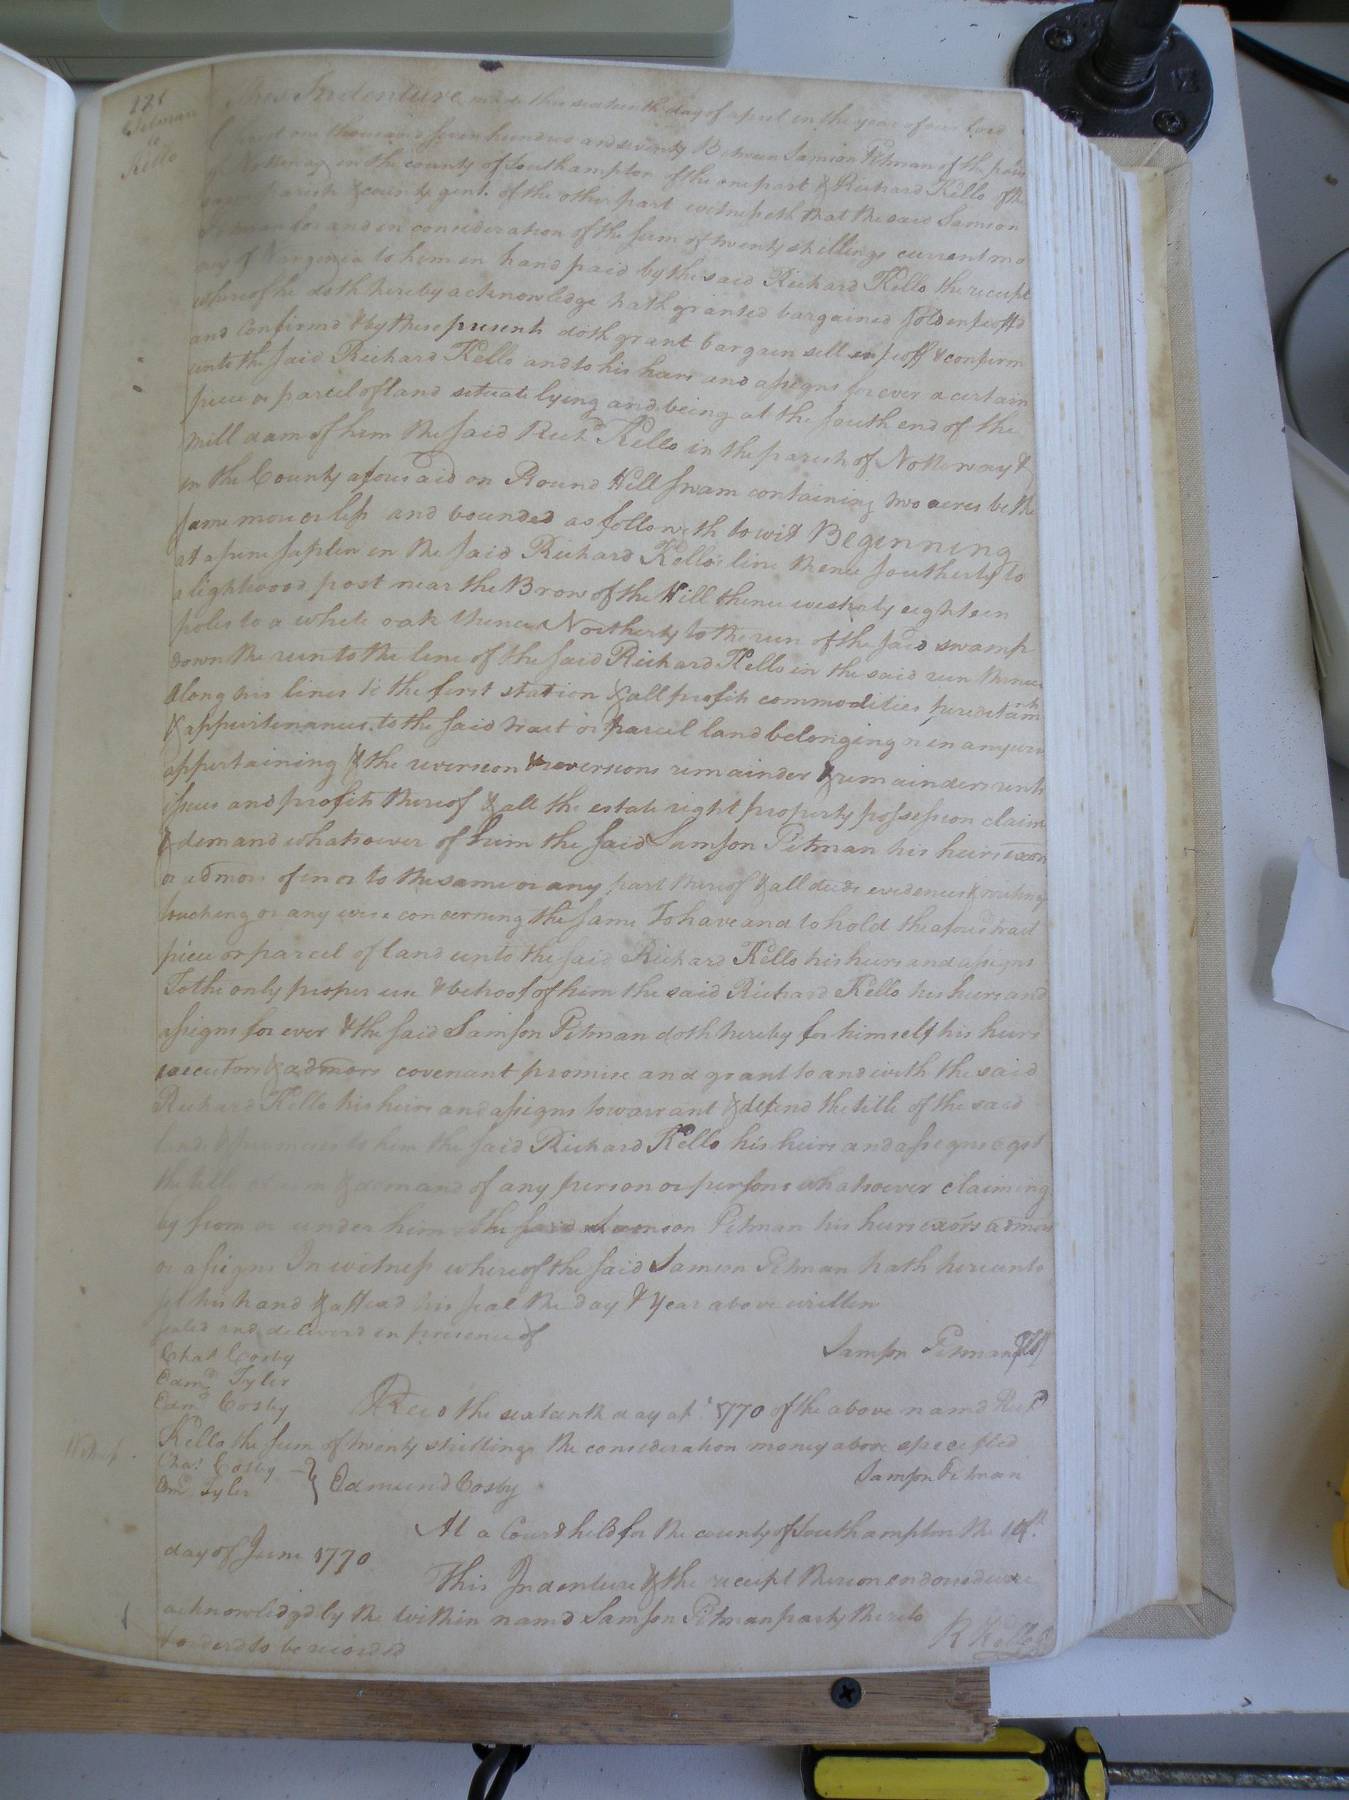 Pitman
to
Kello
This Indenture made this sixteenth day of april in the year of our Lord
Christ one thousand seven hundred and seventy Between Samson Pitman of the paris
of Nottoway in the county of Southampton of the one part & Richard Kello of the
same parish & county gent. of the other part witnesseth that the said Samson
Pitman for and in consideration of the sum of twenty shillings current mo
ney of Virginia to him in hand paid by the said Richard Kello the receipt
whereof he doth hereby acknowledge hath granted bargained sold enfeoffd
and confirmd & by these presents doth grant bargain sell enfeoff & confirm
unto the said Richard Kello and to his heirs and assigns for ever a certain
piece or parcel of land situate lying and being at the south end of the
mill dam of him the said Richd Kello in the parish of Nottoway &
in the County aforesaid on Round Hill swam containing two acres be the
same more or less and bounded as followeth to wit Beginning
at a pine saplin in the said Richard Kello's line thence southerly to
a lightwood post near the Brow of the Hill thence westerly eighteen
poles to a white oak thence Northerly to the run of the said swamp
down the run to the line of the said Richard Kello in the said run thence
along his lines to the first station & all profits commodities hereditamts
& appurtenances to the said tract or parcel land belonging or in anywise
appertaining & the reversion & reversions remainder & remainders rents
issues and profits thereof & all the estate right property possession claim
& demand whatsoever of him the said Samson Pitman his heirs exors
or admors of in or to the same or any part thereof & all deeds evidences & writings
touching or any wise concerning the same To have and to hold the aforesd tract
piece or parcel of land unto the said Richard Kello his heirs and assigns
To the only proper use & behoof of him the said Richard Kello his heirs and
assigns for ever & the said Samson Pitman doth hereby for himself his heirs
executors & admors covenant promise and grant to and with the said
Richard Kello his heirs and assigns to warrant & defend the title of the said
land & premises to him the said Richard Kello his heirs and assigns agst
the title claim & demand of any person or persons whatsoever claiming
by from or under him the said Samson Pitman his heirs exors admors
or assigns In witness whereof the said Samson Pitman hath hereunto
set his hand & affixd his seal the day & year above written
seald and deliverd in presence of
Samson Pitman
Chas Cosby
Edmd Tyler
Edmd Cosby
Recd the sixteenth day apl 1770 of the above namd Richd
Kello the sum of twenty shillings the consideration money above specified
Chas. Cosby
Edmd Tyler
Edmund Cosby
Samson Pitman
At a Court held for the county of Southampton the 14th.
day of June 1770
This Indenture & the receipt thereon endorsed were
acknowledgd by the within namd Samson Pitman party thereto
& orderd to be recorded
R Kello